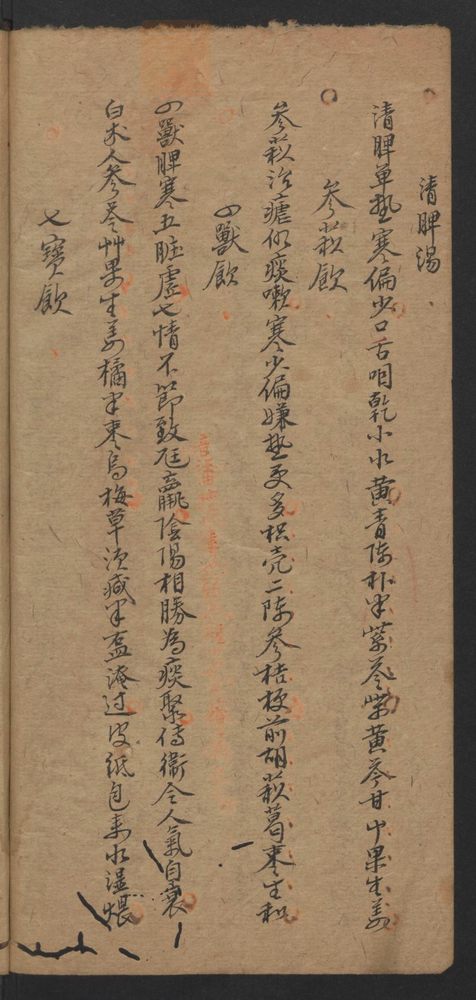 清脾湯
清脾單熱寒偏少口舌咽乾小水黃青陳朴半紫苓柴黃芩甘中果生姜
參菽飲
參菽治瘧似痰嗽寒少偏嫌熱更多枳壳二陳參桔梗前胡菽葛棗生和
四獸飲
四獸脾寒五臟虛七情不節致尫羸陰陽相勝為痰聚侍衛令人氣自衰
白朮人參苓草果生姜橘半棗烏梅草須减半盐淹过皮紙包来水湿煨
七寶飲